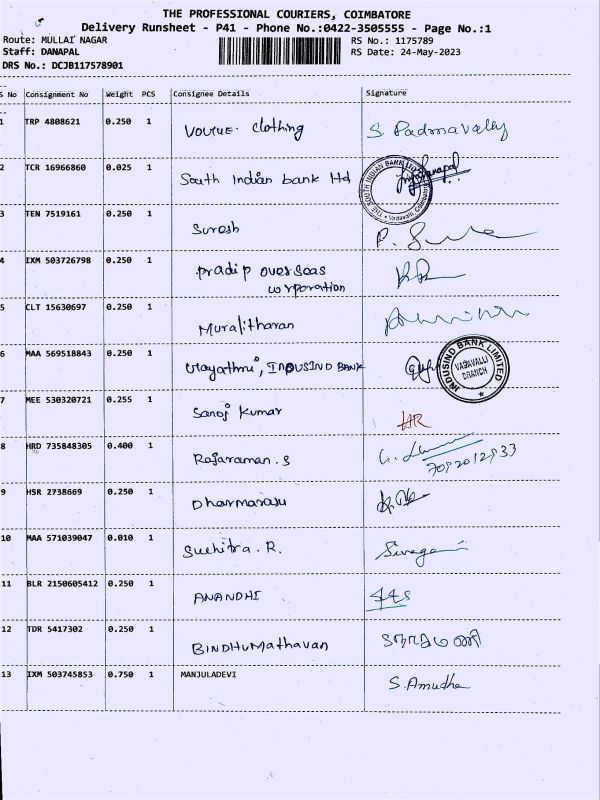 THE PROFESSIONAL COURIERS, COIMBATORE
Delivery Runsheet - P41 - Phone No.:0422-3505555 - Page No.:1
Route: MULLAI NAGAR
RS No.: 1175789
Staff: DANAPAL
RS Date: 24-May-2023
DRS No.: DCJB117578901
S No Consignment No Weight PCS Consignee Details Signature
1 TRP 4808621 0.250 1 VOUTUE clothing S. Padmavathy
2 TCR 16966860 0.025 1 South Indian bank ltd
THE SOUTH INDIAN BANK LTD Vadavalli, Coimbatore
3 TEN 7519161 0.250 1 Suresh
4 IXM 503726798 0.250 1 pradip overseas
corporation
5 CLT 15630697 0.250 1 Muralitharan
6 MAA 569518843 0.250 1 INDUSIND BANK
INDUSIND BANK LIMITED
VADAVALLI
BRANCH
7 MEE 530320721 0.255 1 Sanoj kumar
8 HRD 735848305 0.400 1 Rajaraman. S
9 HSR 2738669 0.250 1 Dharmaraju
10 MAA 571039047 0.010 1 Suchitra. R.
11 BLR 2150605412 0.250 1 ANANDHI
12 TDR 5417302 0.250 1 BINDHUMathavan
13 IXM 503745853 0.750 1 MANJULADEVI S. Amudha